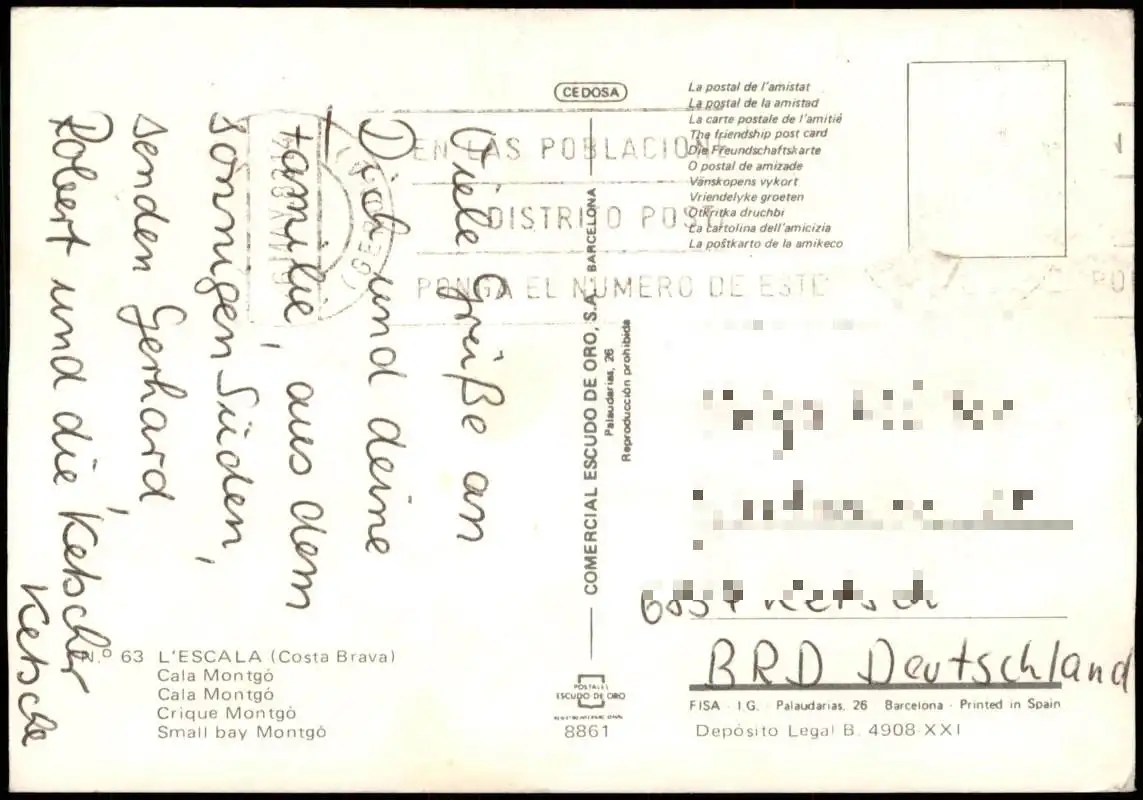 Viele Grüße an
Dich und deine
Familie, aus dem
sonnigen Süden,
senden Gerhard,
Robert und die Ketscher
CEDOSA
La postal de l'amistat
La postal de la amistad
La carte postale de l'amitié
The friendship post card
Die Freundschaftskarte
O postal de amizade
Vänskopens vykort
Vriendelyke groeten
Otkritka druchbi
La cartolina dell'amicizia
La poŝtkarto de la amikeco
EN LAS POBLACION
DISTRITO POST
PONGA EL NUMERO DE ESTE
COMERCIAL ESCUDO DE ORO, S.A. BARCELONA
Palaudarias, 26
Reproducción prohibida
BRD Deutschland
FISA - I.G. - Palaudarias, 26 Barcelona - Printed in Spain
Depósito Legal B. 4908-XXI
N.º 63 L'ESCALA (Costa Brava)
Cala Montgó
Cala Montgó
Crique Montgó
Small bay Montgó
POSTALES
ESCUDO DE ORO
8861